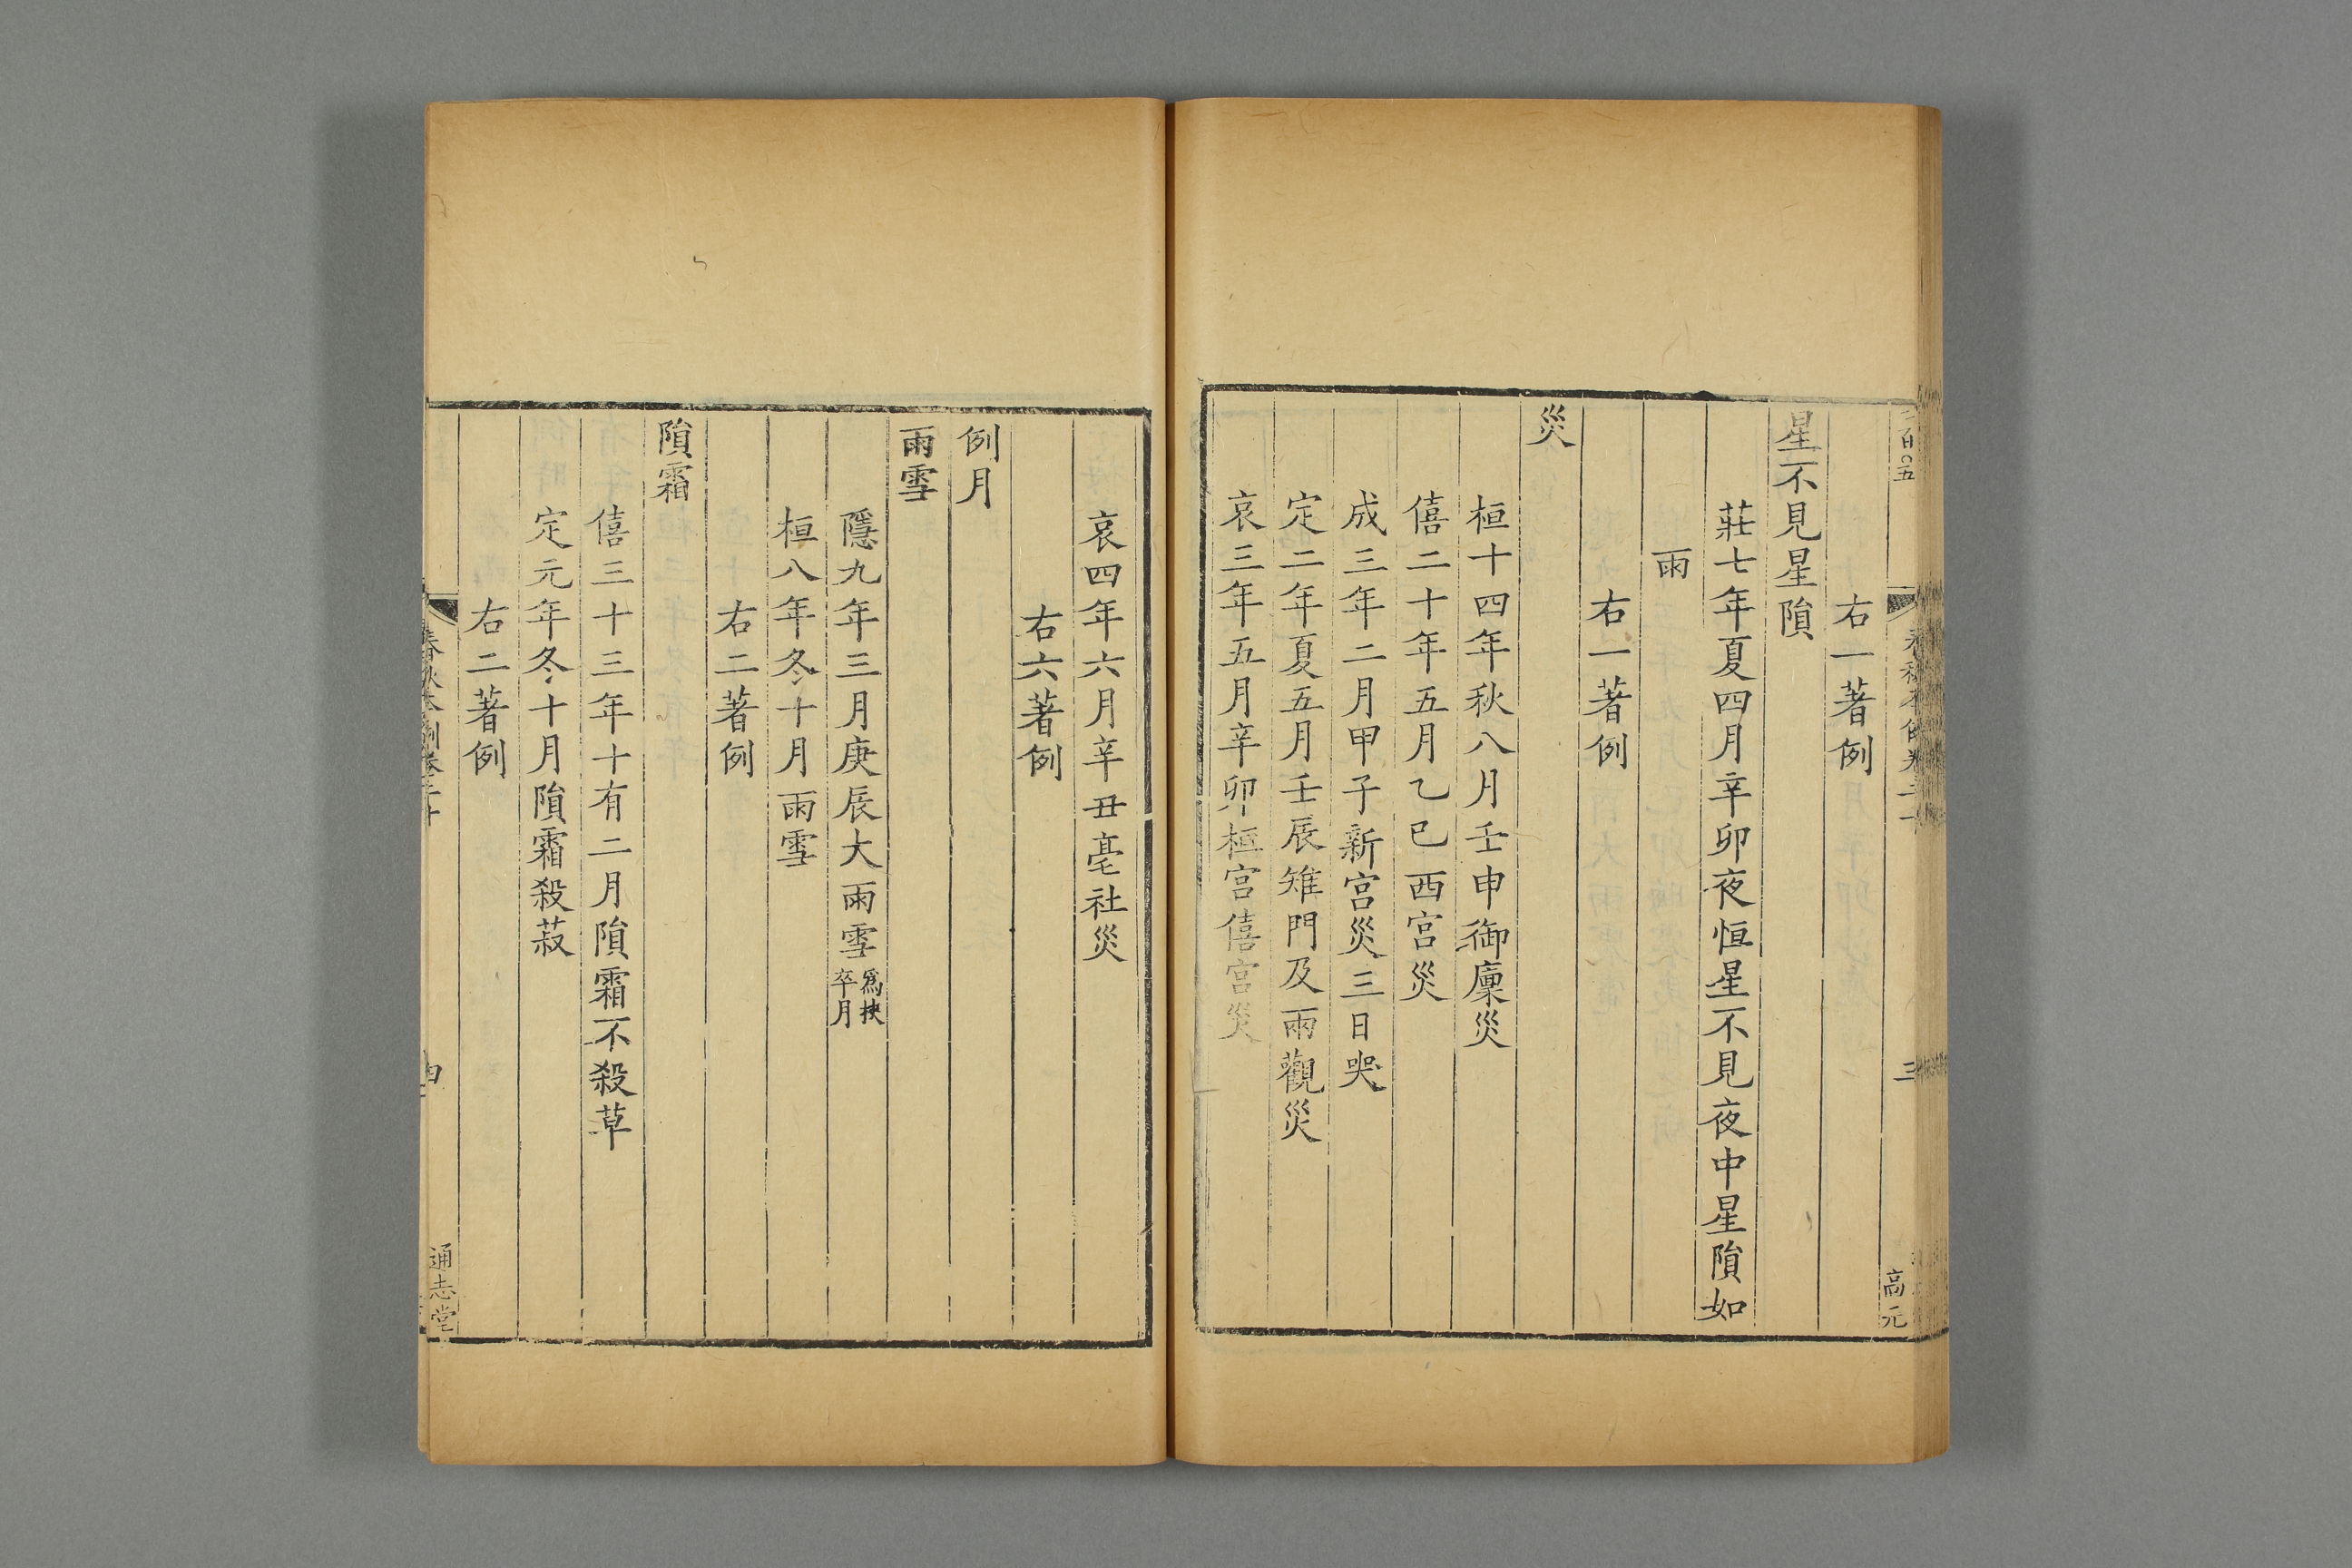 右一著例
星不見星隕
莊七年夏四月辛卯夜恒星不見夜中星隕如
雨
右一著例
災
桓十四年秋八月壬申御廩災
僖二十年五月乙巳西宮災
成三年二月甲子新宮災三日哭
定二年夏五月壬辰雉門及兩觀災
哀三年五月辛卯桓宮僖宮災
三
高元
哀四年六月辛丑亳社災
右六著例
例月
雨雪
隱九年三月庚辰大雨雪爲挾卒月
桓八年冬十月雨雪
右二著例
隕霜
僖三十三年十有二月隕霜不殺草
定元年冬十月隕霜殺菽
右二著例
通志堂